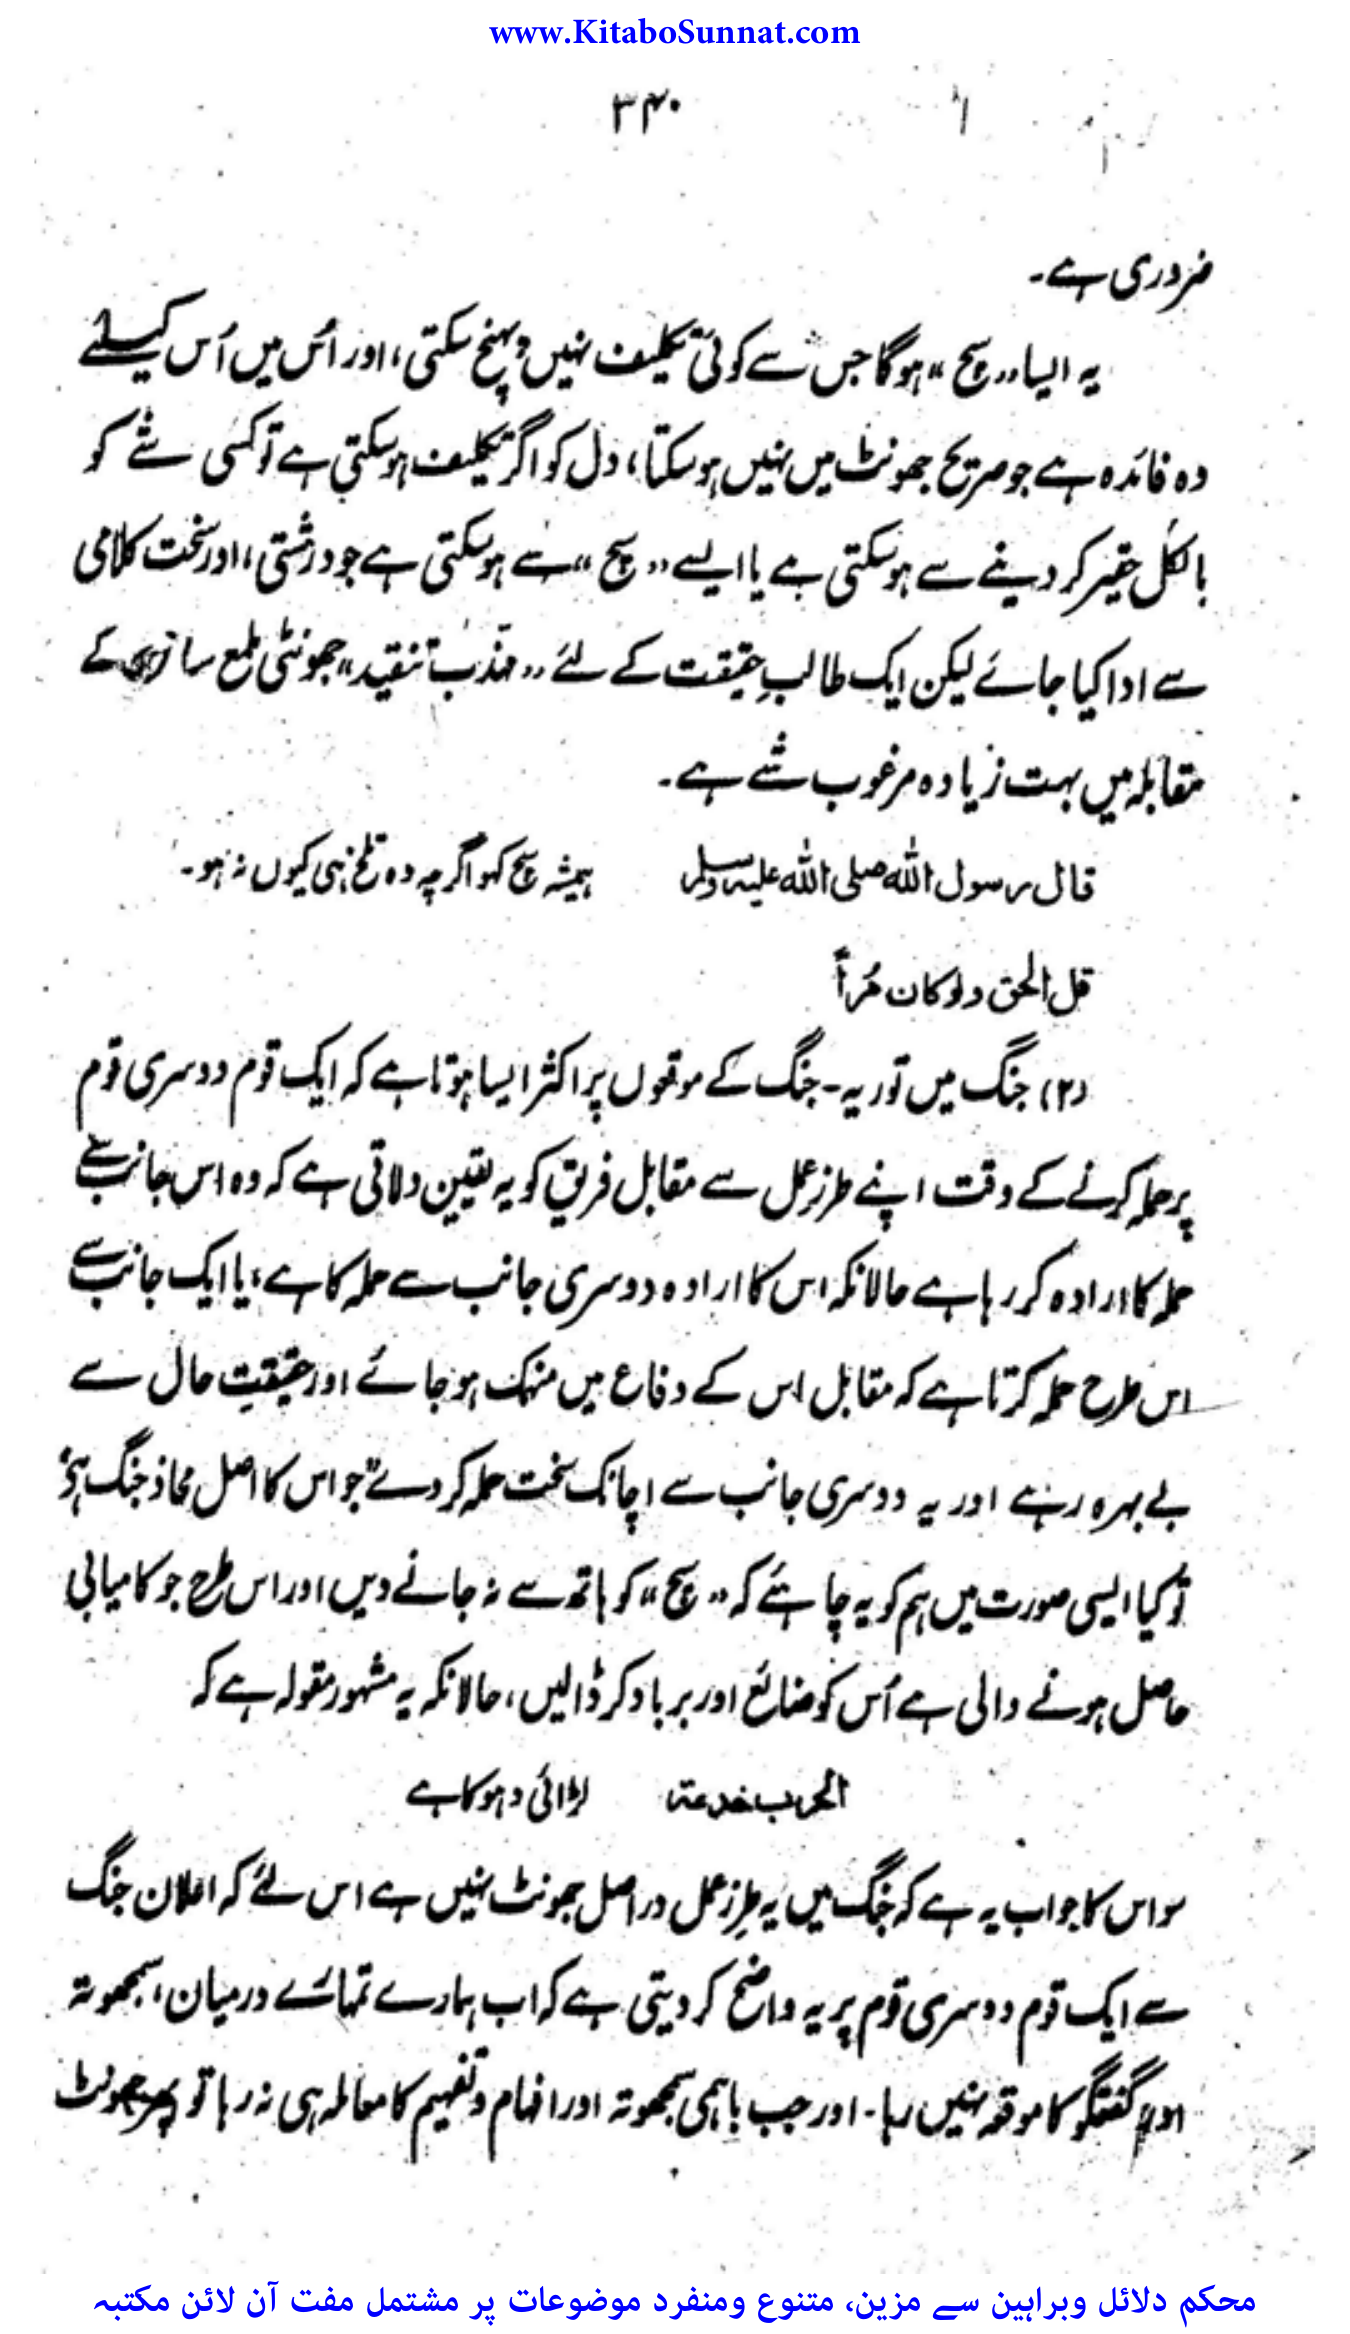 www.KitaboSunnat.com
۳۴۰
ضروری ہے۔
یہ ایسا ”سچ“ ہوگا جس سے کوئی تکلیف نہیں پہنچ سکتی، اور اس میں اُس کیلئے
وہ فائدہ ہے جو صریح جھونٹ میں نہیں ہو سکتا، دل کو اگر تکلیف ہو سکتی ہے تو کسی شے کو
بالکل حقیر کر دینے سے ہو سکتی ہے یا ایسے ”سچ“ سے ہو سکتی ہے جو درشتی، اور سخت کلامی
سے ادا کیا جائے لیکن ایک طالبِ حقیقت کے لئے ”مہذب تنقید“ جھونٹی ملمع سازی کے
مقابلہ میں بہت زیادہ مرغوب شے ہے۔
قال رسول الله صلى الله عليه وسلم ہمیشہ سچ کہو اگرچہ وہ تلخ ہی کیوں نہ ہو۔
قل الحق ولو كان مُراً
(۲) جنگ میں توریہ۔ جنگ کے موقعوں پر اکثر ایسا ہوتا ہے کہ ایک قوم دوسری قوم
پر حملہ کرنے کے وقت اپنے طرزِ عمل سے مقابل فریق کو یہ یقین دلاتی ہے کہ وہ اس جانب سے
حملہ کا ارادہ کر رہا ہے حالانکہ اس کا ارادہ دوسری جانب سے حملہ کا ہے، یا ایک جانب سے
اس طرح حملہ کرتا ہے کہ مقابل اس کے دفاع میں منہمک ہو جائے اور حقیقتِ حال سے
بے بہرہ رہے اور یہ دوسری جانب سے اچانک سخت حملہ کر دے جو اس کا اصل محاذ جنگ ہے،
تو کیا ایسی صورت میں ہم کو یہ چاہئے کہ ”سچ“ کو ہاتھ سے نہ جانے دیں اور اس طرح جو کامیابی
حاصل ہونے والی ہے اُس کو ضائع اور برباد کر ڈالیں، حالانکہ یہ مشہور مقولہ ہے کہ
الحرب خدعة لڑائی دھوکا ہے
سو اس کا جواب یہ ہے کہ جنگ میں یہ طرزِ عمل دراصل جھونٹ نہیں ہے اس لئے کہ اعلان جنگ
سے ایک قوم دوسری قوم پر یہ واضح کر دیتی ہے کہ اب ہمارے تمہارے درمیان، سمجھوتہ
اور گفتگو کا موقعہ نہیں رہا۔ اور جب باہمی سمجھوتہ اور افہام و تفہیم کا معاملہ ہی نہ رہا تو پھر جھونٹ
محکم دلائل وبراہین سے مزین، متنوع ومنفرد موضوعات پر مشتمل مفت آن لائن مکتبہ